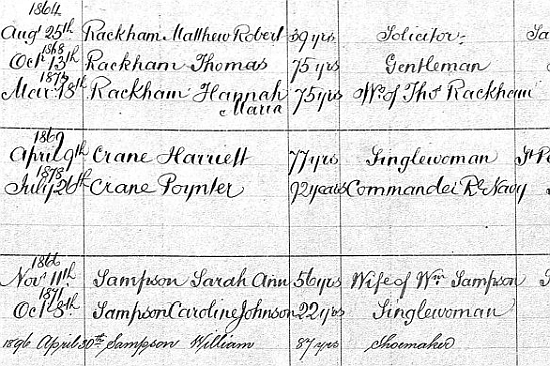 1864
Augt 25th Rackham Matthew Robert 39 yrs Solicitor
1868
Octr 13th Rackham Thomas 75 yrs Gentleman
Mar 18th Rackham Hannah 75 yrs Wo. of Thos Rackham
Maria
1869
April 9th Crane Harriett 77 yrs Singlewoman
1873
July 26th Crane Poynter 92 years Commander Rl Navy
1866
Novr 11th Sampson Sarah Ann 56 yrs Wife of Wm Sampson
1871
Oct 5th Sampson Caroline Johnson 22 yrs Singlewoman
1896 April 30th Sampson William 87 yrs Shoemaker